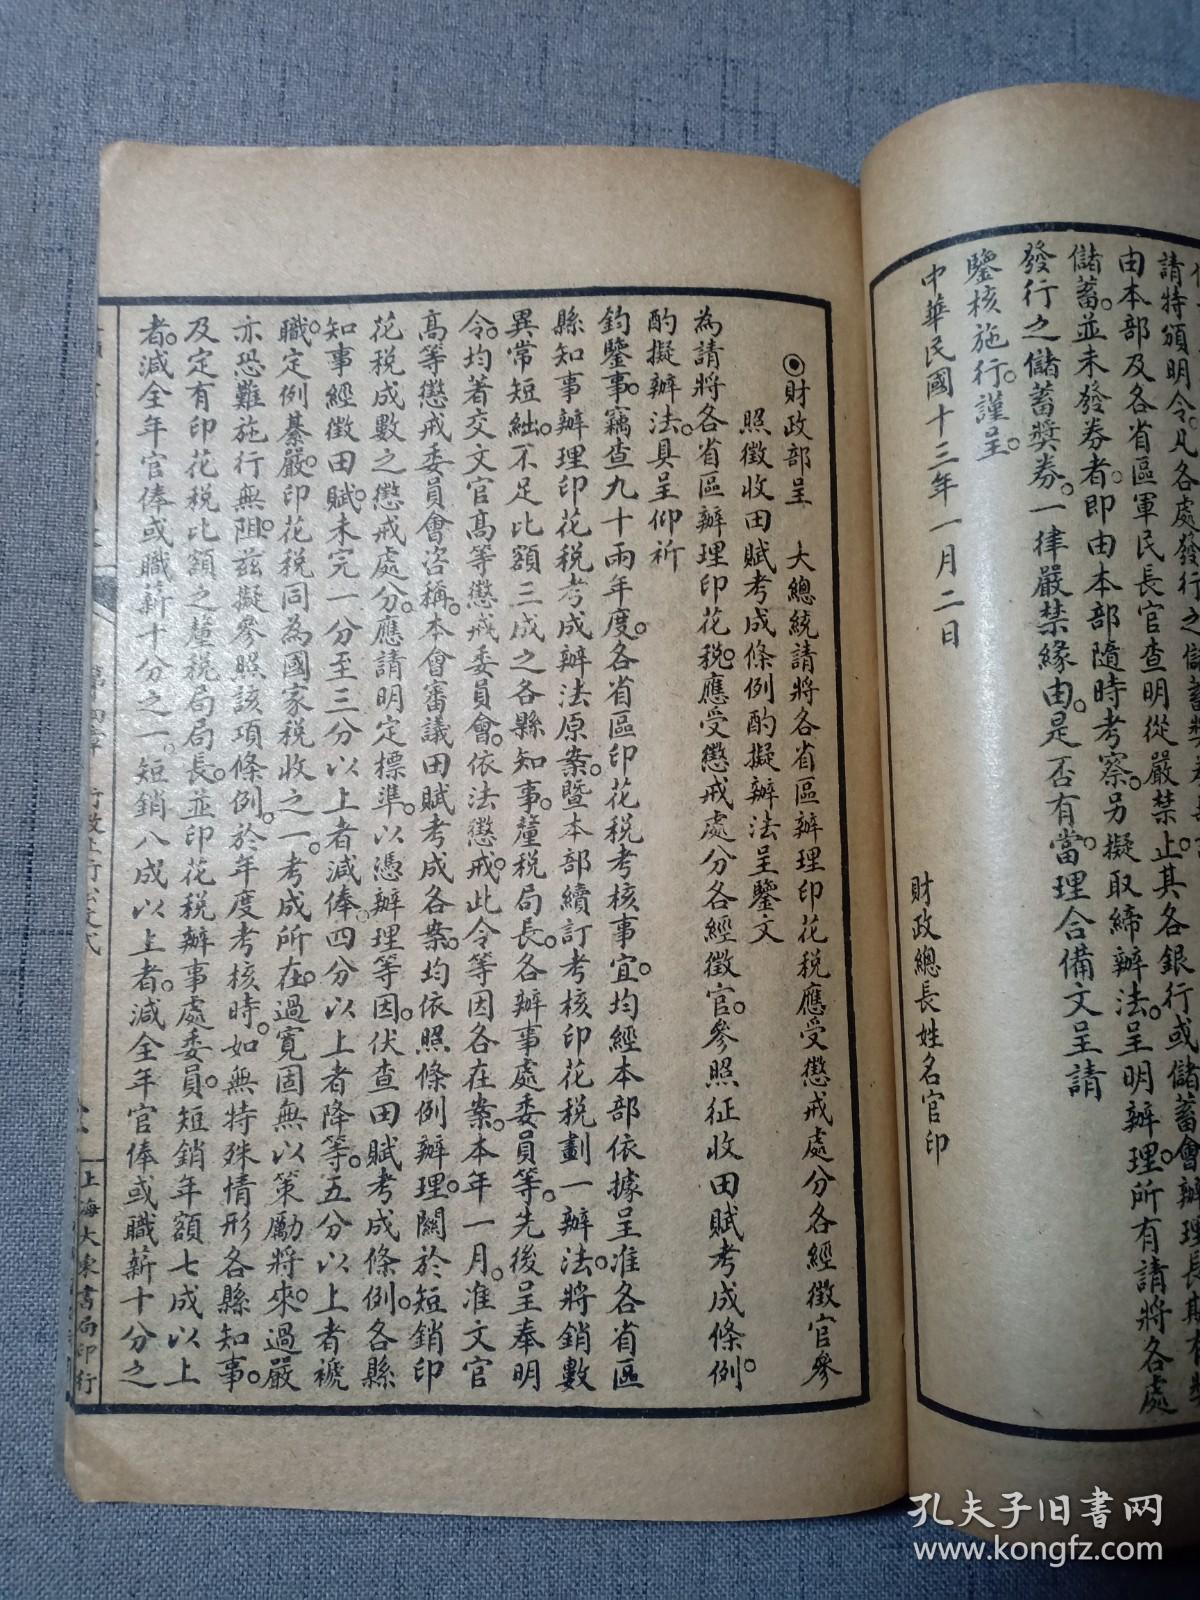 請特頒明令。凡各處發行之儲蓄獎券
由本部及各省區軍民長官查明從嚴禁止。其各銀行或儲蓄會辦理長期有獎
儲蓄。並未發券者。即由本部隨時考察。另擬取締辦法。呈明辦理。所有請將各處
發行之儲蓄獎券。一律嚴禁緣由。是否有當。理合備文呈請
鑒核施行。謹呈。
中華民國十三年一月二日
財政總長姓名官印
◉財政部呈 大總統請將各省區辦理印花稅應受懲戒處分各經徵官參
照徵收田賦考成條例酌擬辦法呈鑒文
為請將各省區辦理印花稅。應受懲戒處分各經徵官。參照征收田賦考成條例。
酌擬辦法。具呈仰祈
鈞鑒事。竊查九十兩年度。各省區印花稅考核事宜。均經本部依據呈准各省區
縣知事辦理印花稅考成辦法原案。暨本部續訂考核印花稅劃一辦法。將銷數
異常短絀。不足比額三成之各縣知事。釐稅局長。各辦事處委員等。先後呈奉明
令。均著交文官高等懲戒委員會。依法懲戒。此令等因各在案。本年一月。准文官
高等懲戒委員會咨稱。本會審議田賦考成各案。均依照條例辦理。關於短銷印
花稅成數之懲戒處分。應請明定標準。以憑辦理等因。伏查田賦考成條例。各縣
知事經徵田賦。未完一分至三分以上者減俸。四分以上者降等。五分以上者褫
職。定例綦嚴。印花稅同為國家稅收之一。考成所在。過寬固無以策勵將來。過嚴
亦恐難施行無阻。茲擬參照該項條例。於年度考核時。如無特殊情形各縣知事。
及定有印花稅比額之釐稅局局長。並印花稅辦事處委員。短銷年額七成以上
者。減全年官俸或職薪十分之一。短銷八成以上者。減全年官俸或職薪十分之
上海大東書局印行
孔夫子旧书网
www.kongfz.com